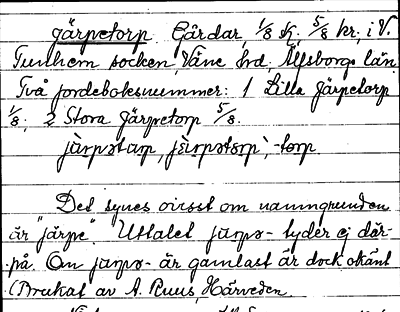 Järpetorp Gårdar, 1/8 sk. 5/8 kr., i V.
Tunhem socken, Väne hrd. Älfsborgs län.
Två jordeboksnummer: 1 Lilla Järpetorp
1/8; 2 Stora Järpetorp 5/8.
jàrpətarp, jàrpətɔrp`, -torp.
Det synes ovisst om namngrunden
är "järpe". Uttalet jarpə- tyder ej där-
på. Om jarpə- är gamlast är dock okänt
(Brukat av A. Ruus, Härveden.